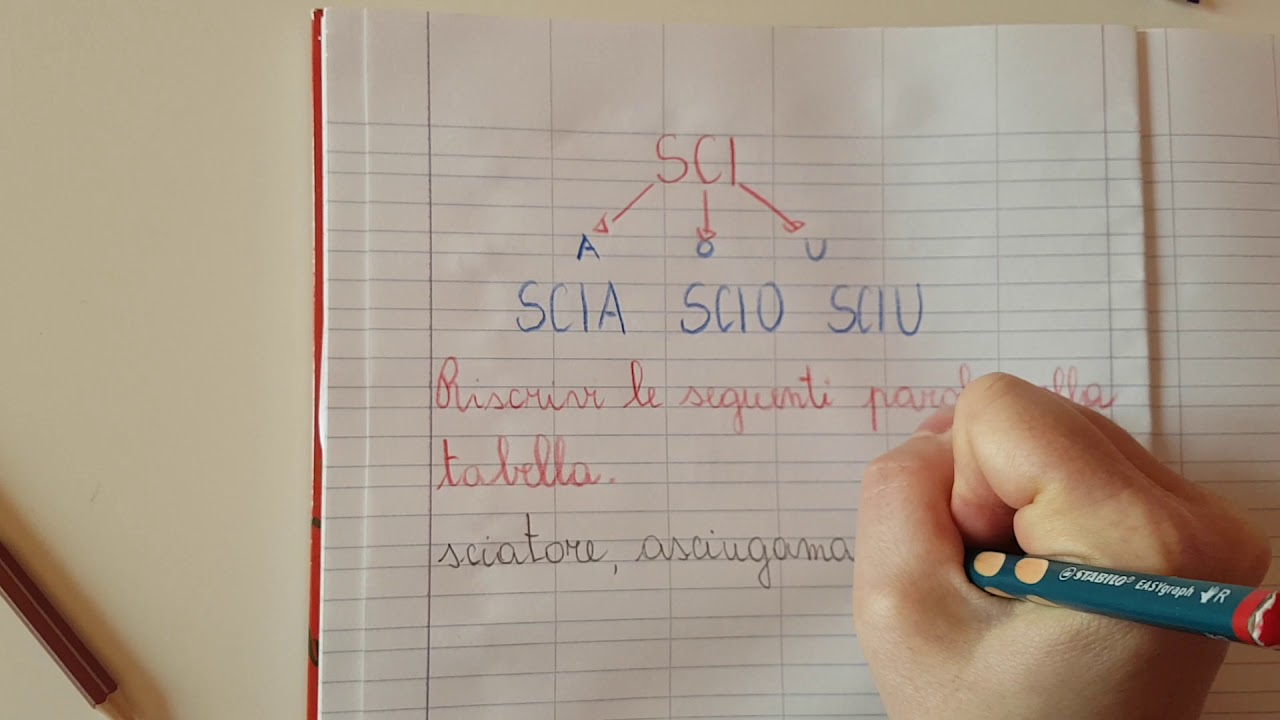 SCI
A O U
SCIA SCIO SCIU
Riscrivi le seguenti
tabella.
sciatore, asciugama
STABILO® EASYgraph R